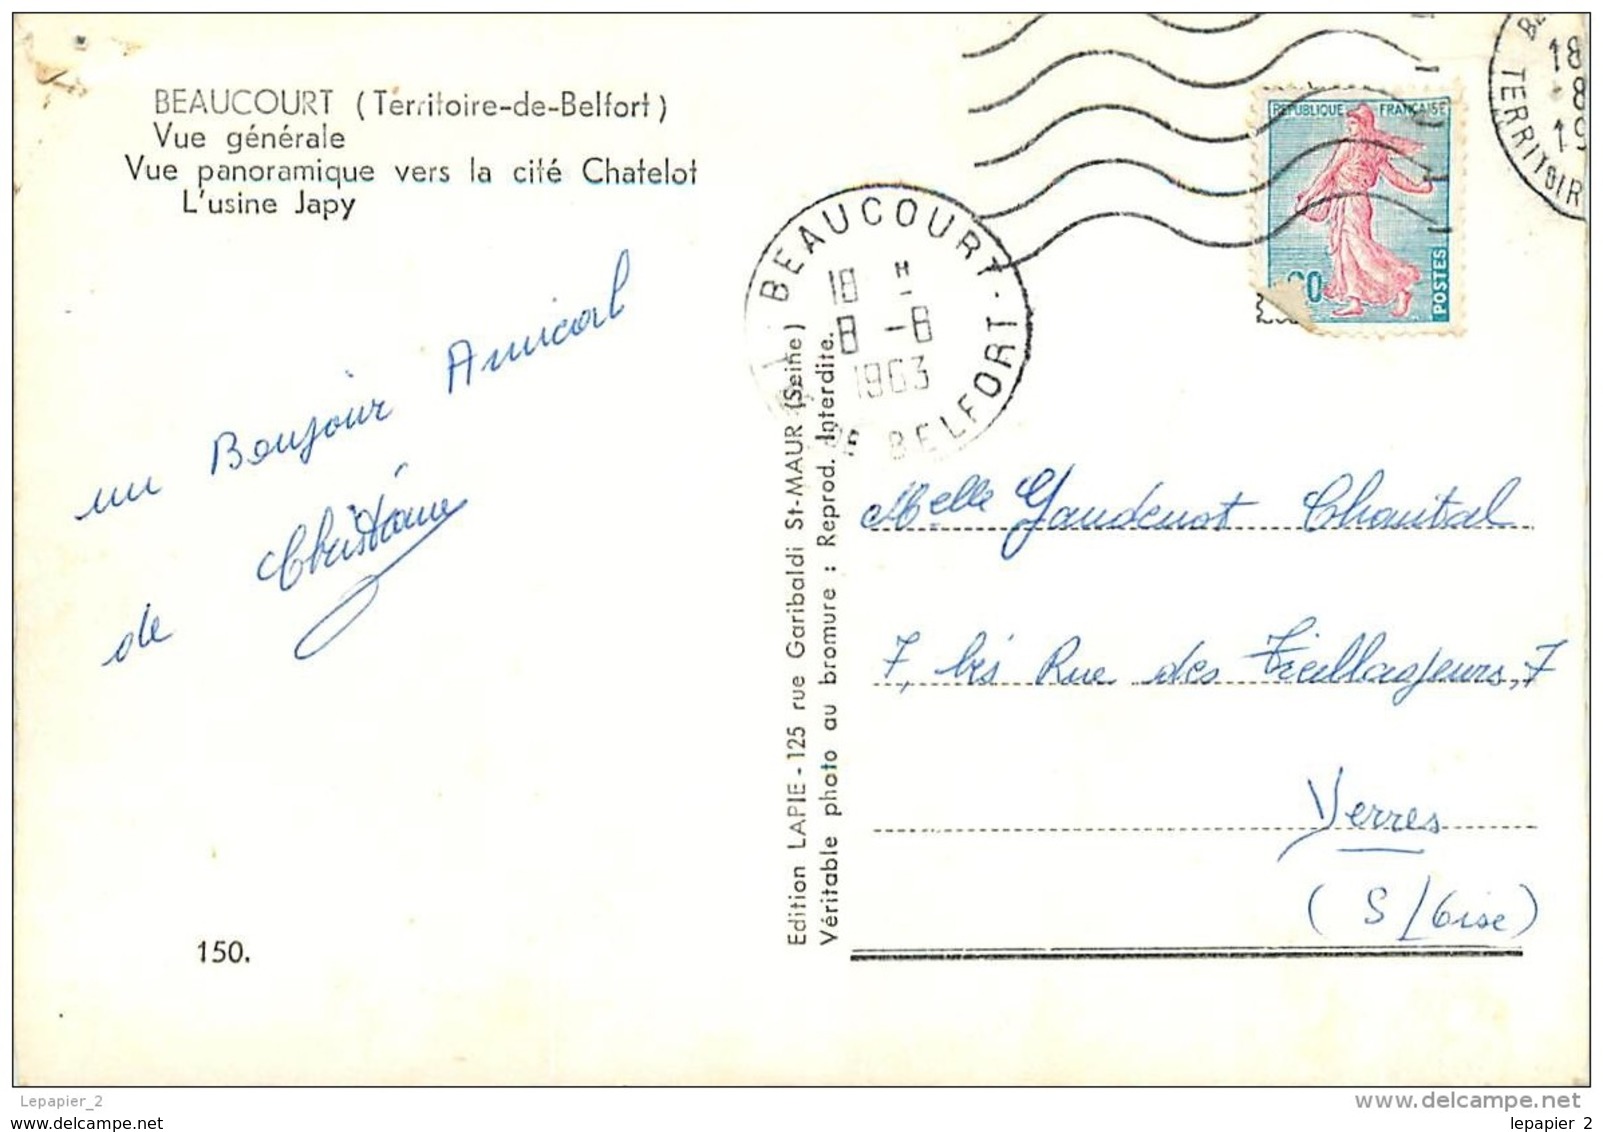 BEAUCOURT (Territoire-de-Belfort)
Vue générale
Vue panoramique vers la cité Chatelot
L'usine Japy
un Bonjour Amical
de Christiane
150.
Edition LAPIE - 125 rue Garibaldi St-MAUR (Seine)
Véritable photo au bromure : Reprod. Interdite.
BEAUCOURT - BELFORT
18 H
8 -8
1963
REPUBLIQUE FRANÇAISE
POSTES
18
8
19
TERRITOIR
Melle Gaudenot Chantal
7, bis Rue des Tieillageurs, 7
Yerres
(S/Oise)
Lepapier_2
www.delcampe.net
lepapier_2